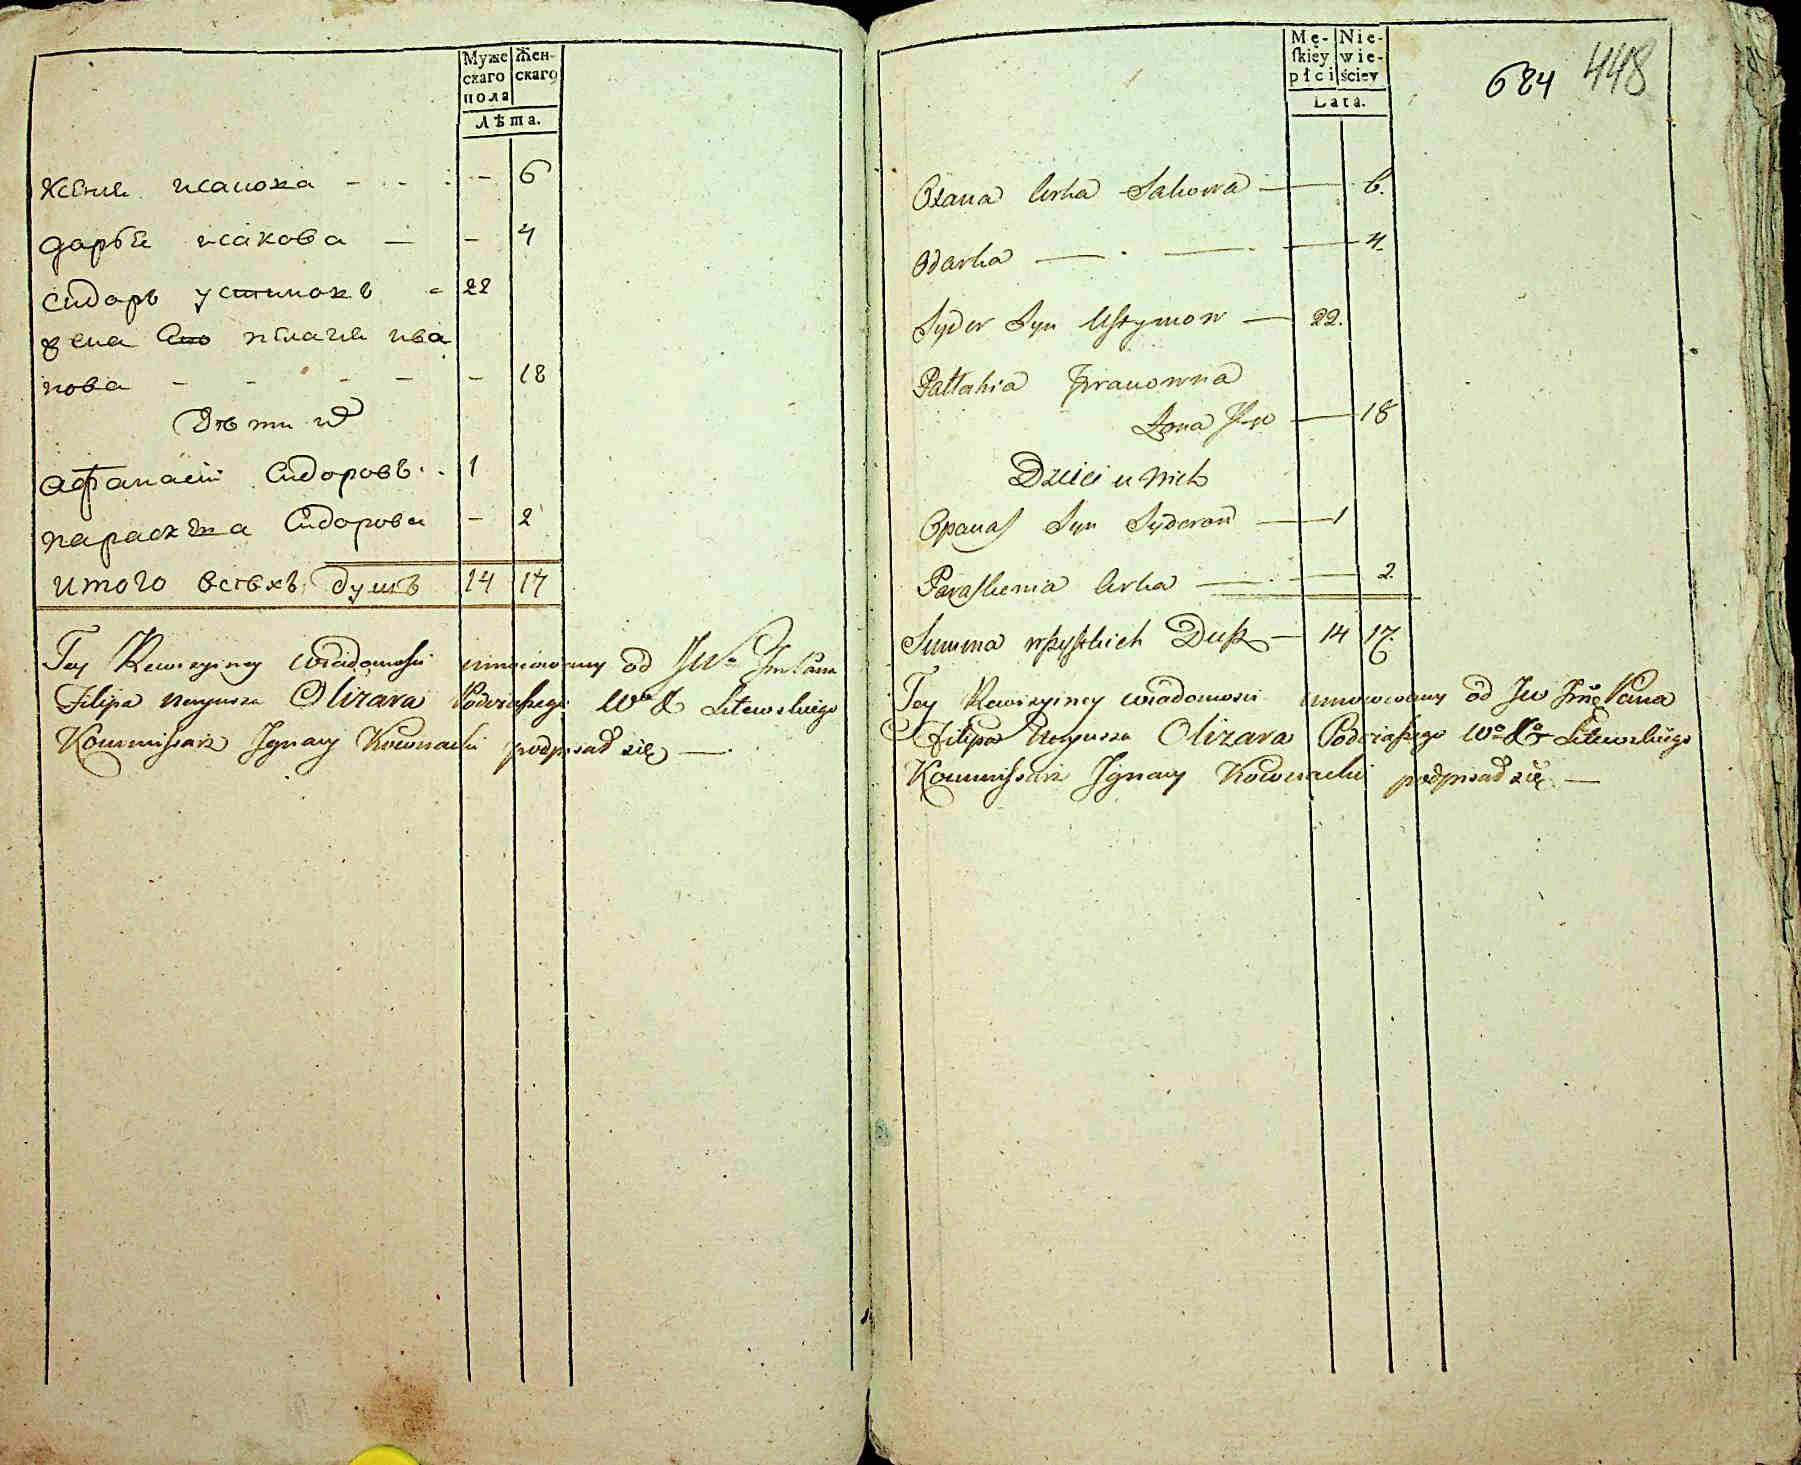 Муже
скаго
пола
Жен-
скаго
Лѣта.
Ксенія исакова - - - - 6
дарья исакова - - 4
сидоръ устимовъ - 22
жена Его пелагія ива
нова - - - - - 18
Дѣти их
афанасій Сидоровъ - 1
параскѣва Сидорова - 2
итого всѣхъ душъ 14 17
Tey Rewizyiney wiadomości umocowany od JW Jm Pana
Filipa Neryusza Olizara Podczaszego Wo X Litewskiego
Kommissarz Jgnacy Kownacki podpisał się —
Mę-
ſkiey
płci
Nie-
wie-
ściey
Lata.
684 448
Oxana Corka Jakowa — 6.
Odarka — . — 4.
Syder Syn Ustymow — 22.
Pallahia Jwanowna
Żona Je-o — 18
Dzieci u Nich
Opanas Syn Syderow — 1
Paraskewia Corka — 2.
Summa wszystkich Dusz — 14 17.
Tey Rewizyiney wiadomosci umocowany od JW Jmć Pana
Filipa Neryusza Olizara Podczaszego Wo Xo Litewskiego
Kommissarz Jgnacy Kownacki podpisał się —